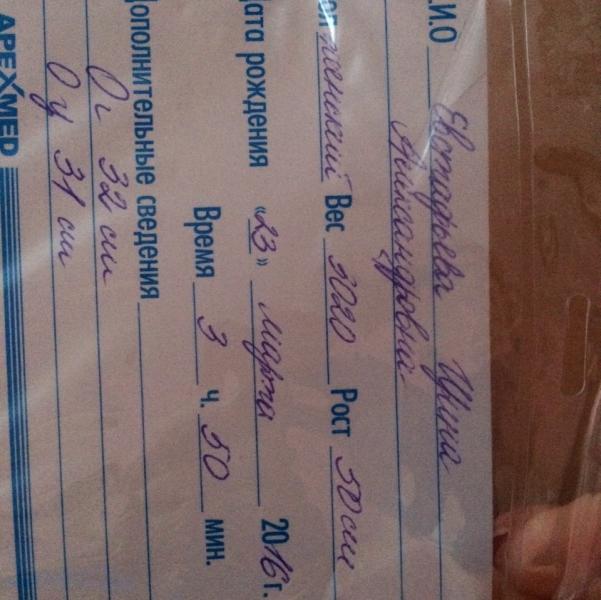 .И.О Евстафьева Ирина
Александровна
ол женский Вес 3020 Рост 50 см
Дата рождения «23» марта 2016 г.
Время 3 ч. 50 мин.
Дополнительные сведения
Ог 32 см
Оу 31 см
APEXMED